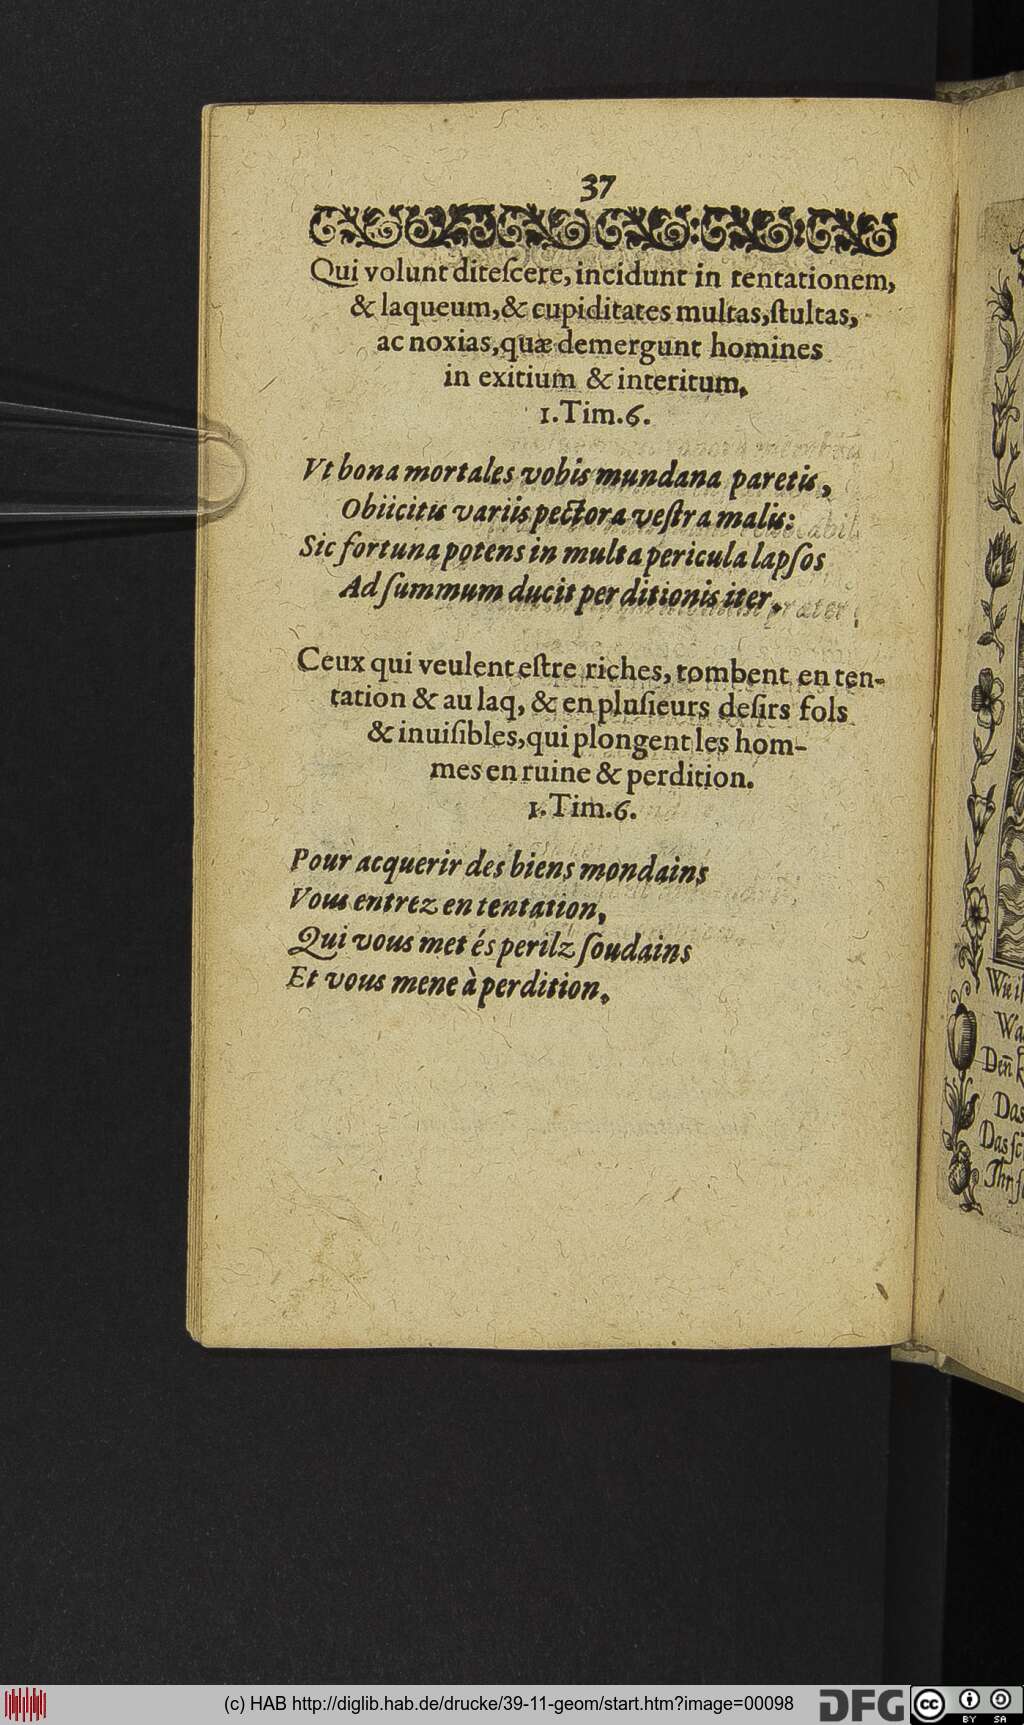 37
Qui volunt diteſcere, incidunt in tentationem,
& laqueum, & cupiditates multas, ſtultas,
ac noxias, quæ demergunt homines
in exitium & interitum.
1. Tim. 6.
Vt bona mortales vobis mundana paretis,
Obiicitis variis pectora veſtra malis:
Sic fortuna potens in multa pericula lapſos
Ad ſummum ducit perditionis iter.
Ceux qui veulent eſtre riches, tombent en ten-
tation & au laq, & en pluſieurs deſirs fols
& inuiſibles, qui plongent les hom-
mes en ruine & perdition.
1. Tim. 6.
Pour acquerir des biens mondains
Vous entrez en tentation,
Qui vous met és perilz ſoudains
Et vous mene à perdition.
Den̄
Das
Das
(c) HAB http://diglib.hab.de/drucke/39-11-geom/start.htm?image=00098
DFG
cc
BY SA